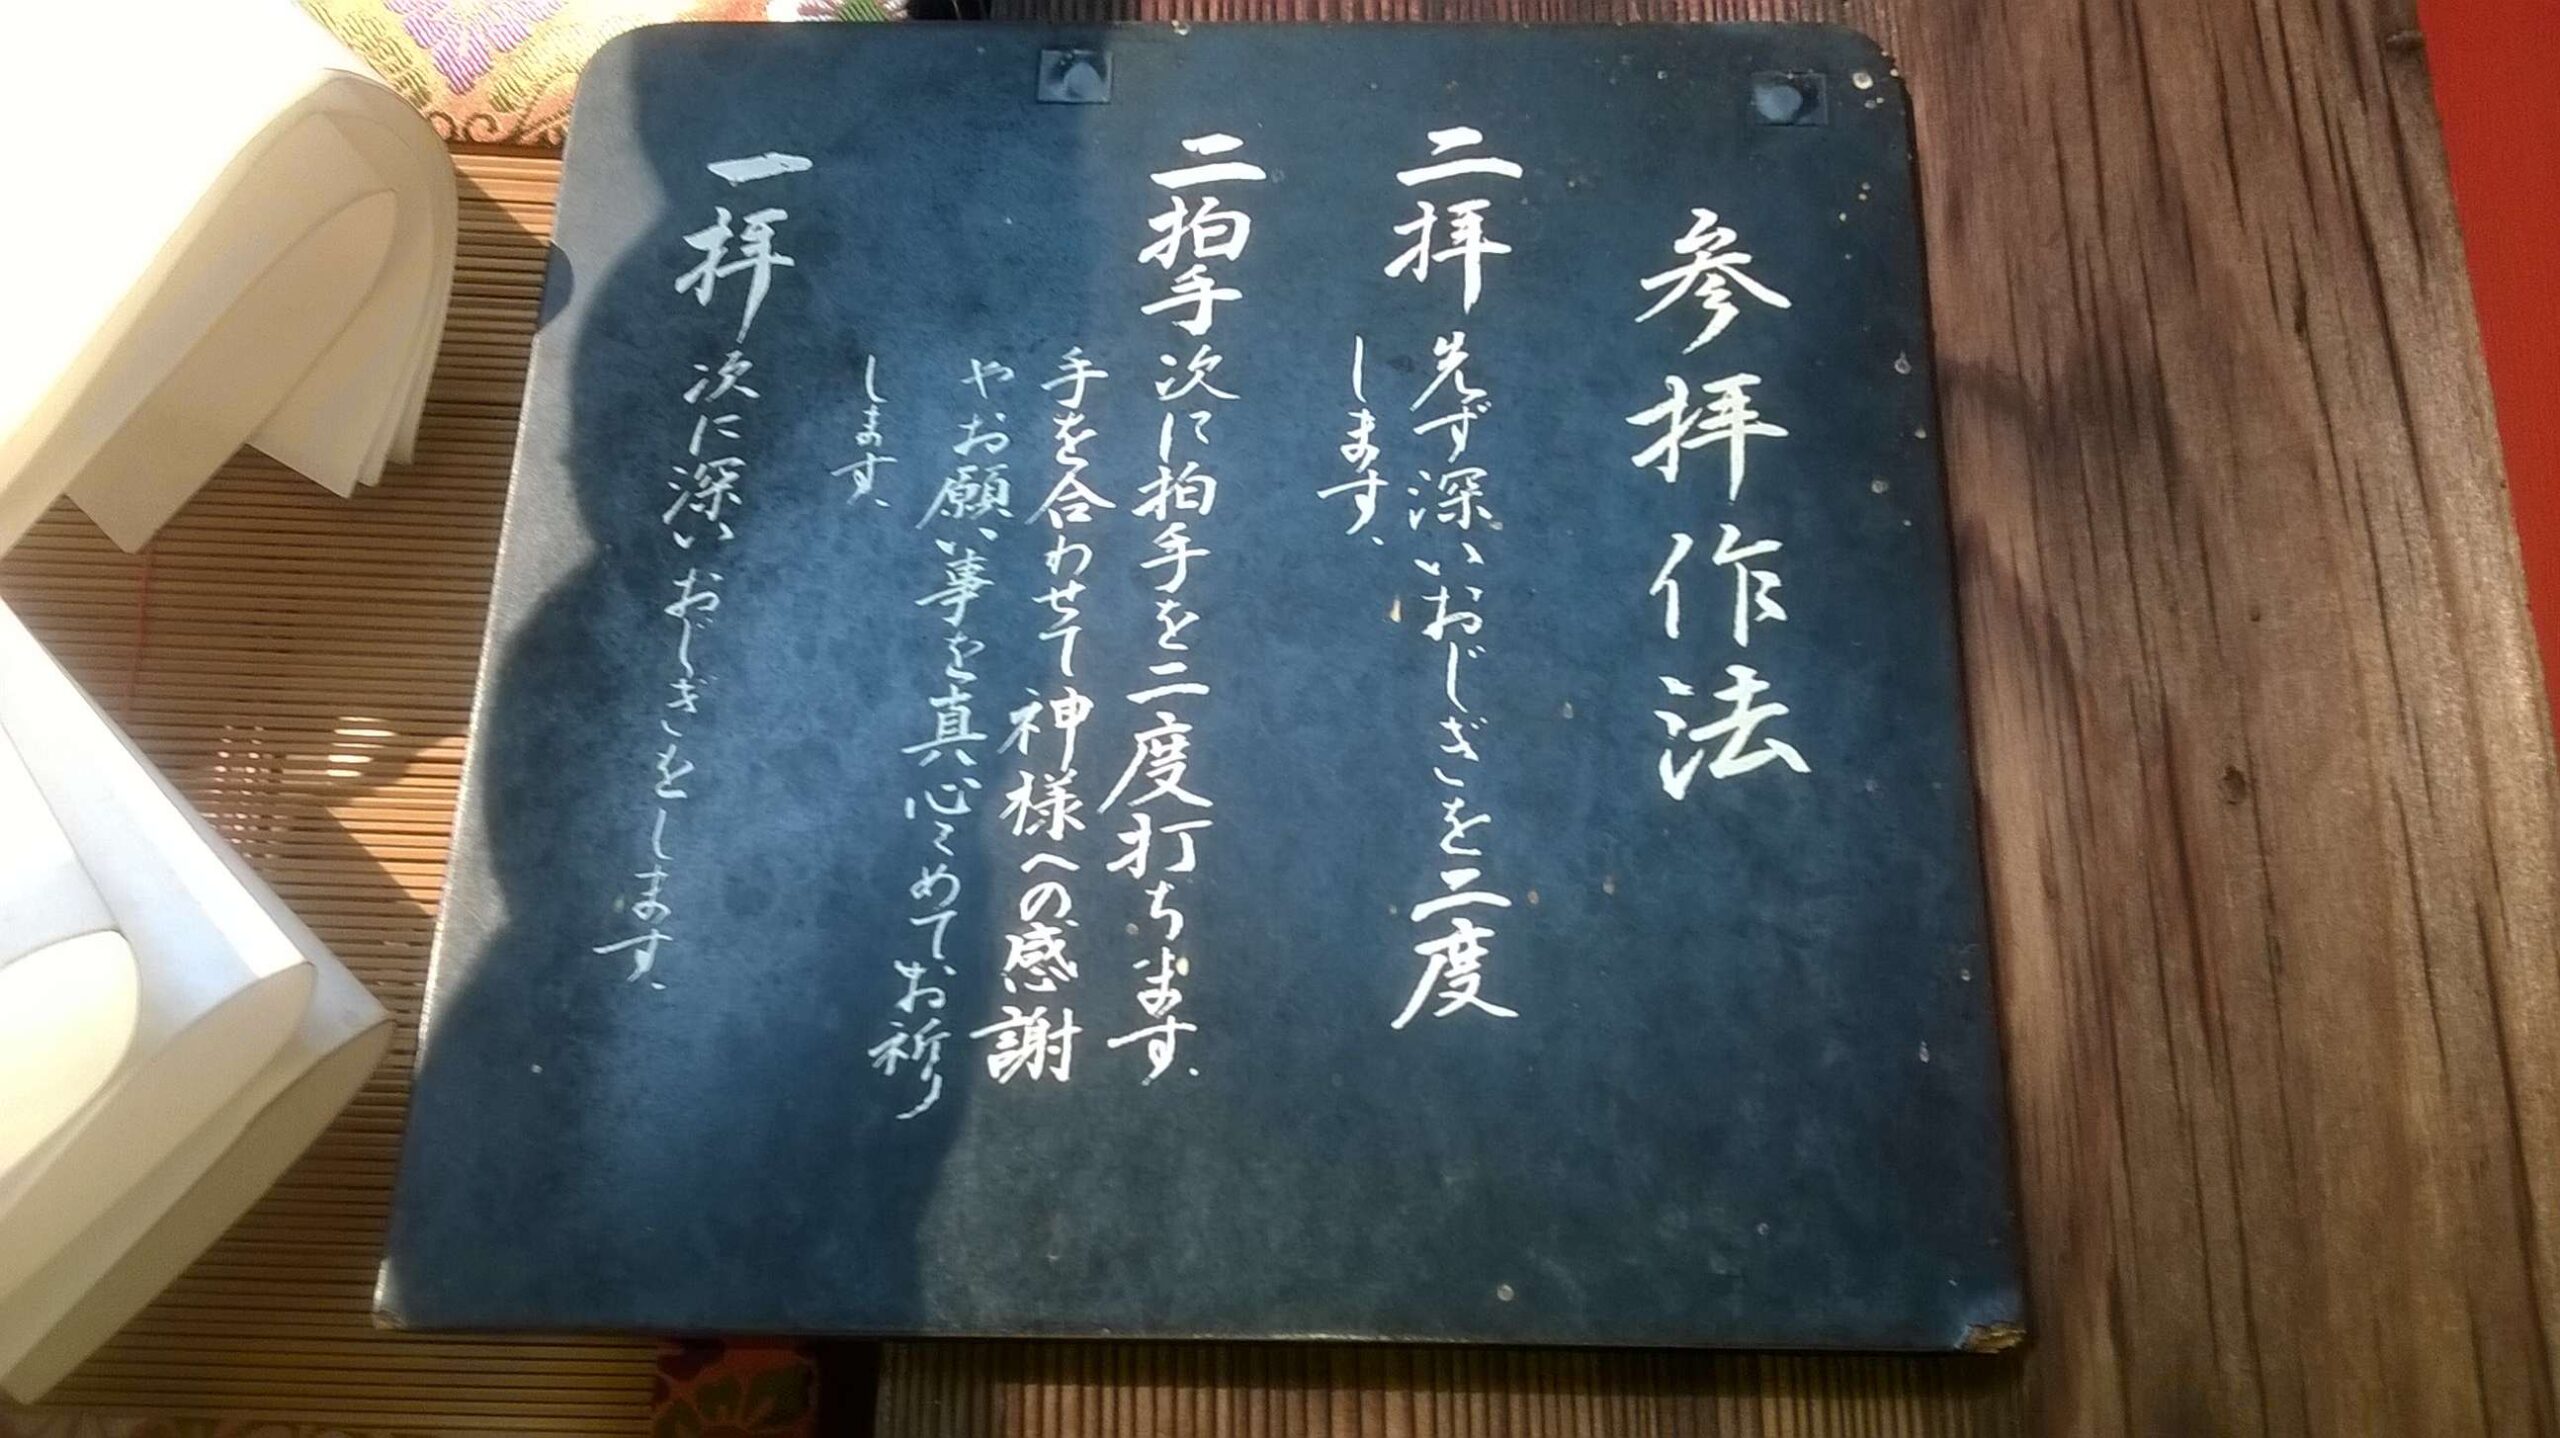 参拝作法
二拝 先ず深いおじぎを二度
します、
二拍手 次に拍手を二度打ちます、
手を合わせて神様への感謝
やお願い事を真心こめてお祈り
します、
一拝 次に深いおじぎをします、